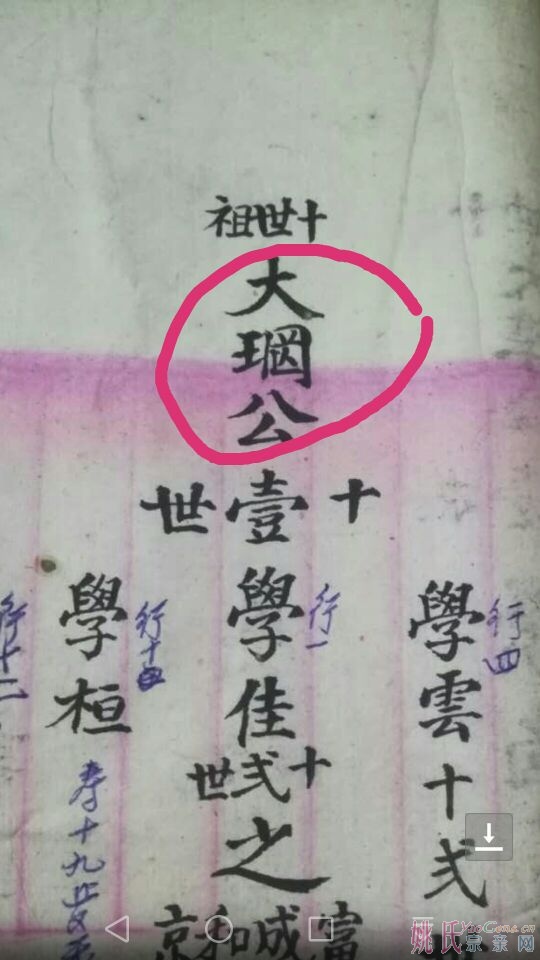 十世祖
大公
十壹世
學雲
行四
十弍
學佳
行一
十弍世
之
學桓
行十四
寿十九
行十二
富成和京
姚氏宗亲网